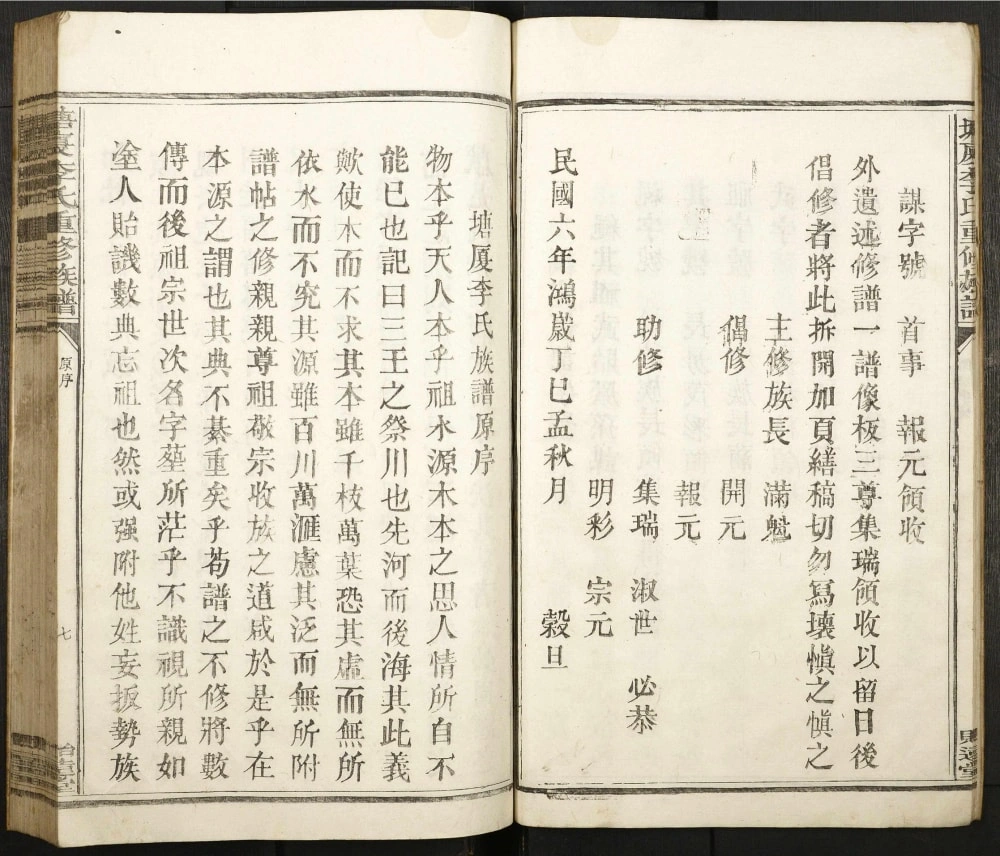 謀字號 首事 報元領收
外遺述修譜一譜像板三尊集瑞領收以留日後
倡修者將此拆開加頁繕稿切勿寫壞慎之慎之
主修族長 滿魁
倡修 開元
報元
助修 集瑞 淑世 必恭
明彩 宗元
民國六年鴻歲丁巳孟秋月 穀旦
塘厦李氏族譜原序
物本乎天人本乎祖水源木本之思人情所自不
能已也記曰三王之祭川也先河而後海其此義
歟使木而不求其本雖千枝萬葉恐其虛而無所
依水而不究其源雖百川萬滙慮其泛而無所附
譜帖之修親親尊祖敬宗收族之道咸於是乎在
本源之謂也其典不綦重矣乎茍譜之不修將數
傳而後祖宗世次名字塟所茫乎不識視所親如
塗人貽譏數典忘祖也然或强附他姓妄扳勢族
塘厦李氏重修族譜
原序
七